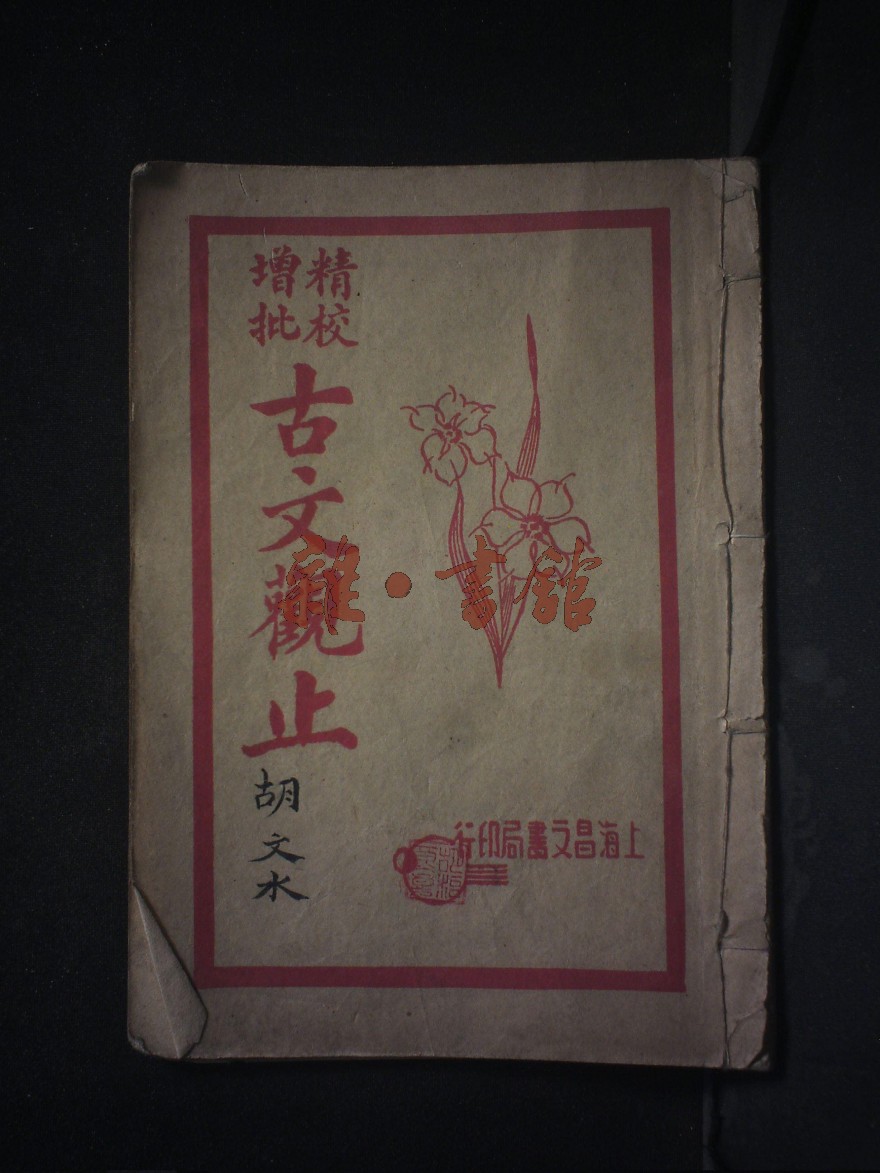 精校
增批
古文觀止
胡文水
上海昌文書局印行
雜·書館